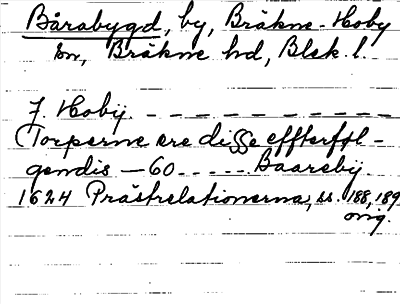 Bårabygd, by, Bräkne-Hoby
sn, Bräkne hd, Blek. l.
J. Hobÿ. – – – – – – – – – –
(Torperne ere disse effterføl-
gendis – 60 – – – – – Baarebÿ.
1624 Prästrelationerna, ss. 188, 189
orig.